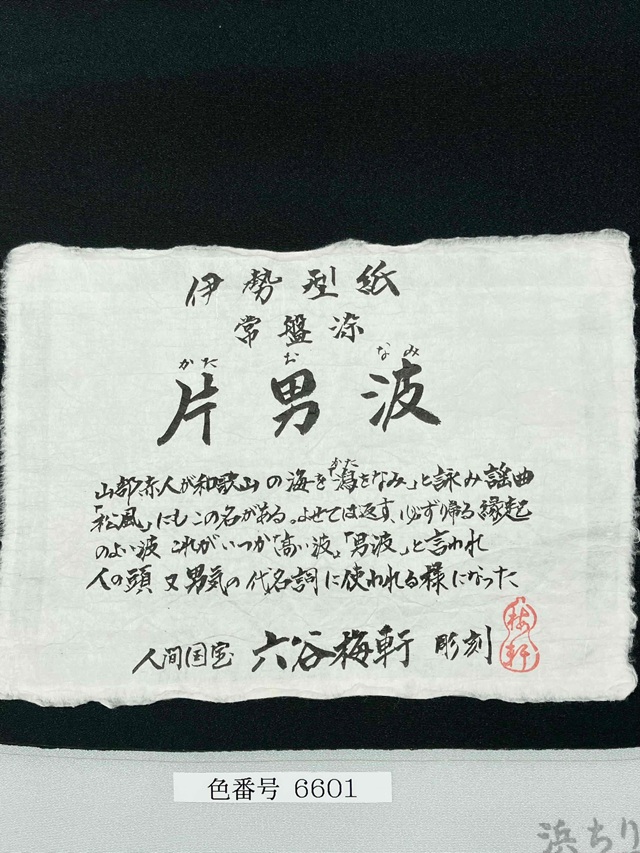 伊勢型紙
常盤染
かた お なみ
片男波
がた
山部赤人が和歌山の海を潟をなみ」と詠み謡曲
「松風」にもこの名がある。よせては返す、必ず帰る縁起
のよい波 これがいつか「高い波」「男波」と言われ
人の頭 又男気の代名詞に使われる様になった
人間国宝 六谷梅軒 彫刻
梅軒
色番号 6601
浜ちり